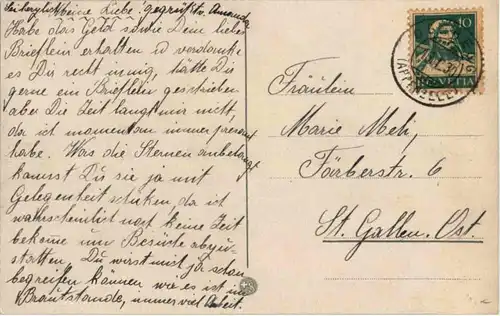 Meine Liebe.
Habe das Geld sowie Dein liebes
Brieflein erhalten u verdanke
es Du recht innig, hätte Du
gerne ein Brieflein geschrieben
aber Die Zeit langt mir nicht,
da ich momentan immer pressant
habe. Was die Sternen anbelangt
kannst Du sie ja mit
Gelegenheit schiken da ich
wahrscheinlich noch keine Zeit
bekome um Besuche abzu-
statten. Du wirst mich ja schon
begreifen können wie es ist im
Brautstande, immer viel Arbeit.
Sei herzlich gegrüsst v. Amanda
10
HELVETIA
(APPENZELL)
Fräulein
Marie Meli,
Färberstr. 6
St. Gallen. Ost.